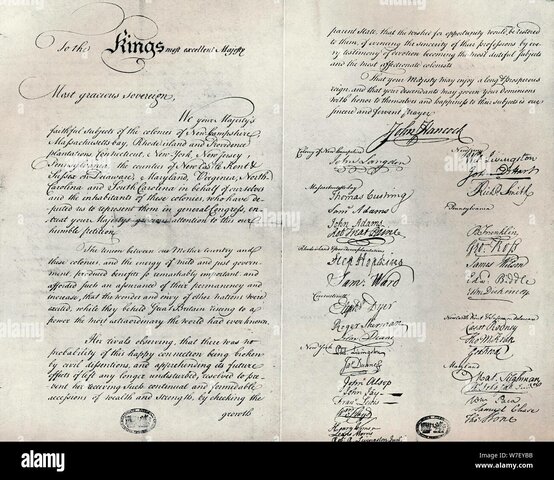 To the Kings most excellent Majesty
Most gracious Sovereign,
We your Majesty's
faithful subjects of the colonies of New Hampshire,
Massachusetts bay, Rhode island and Providence
plantations, Connecticut, New York, New Jersey,
Pennsylvania, the counties of New Castle Kent &
Sussex on Delaware, Maryland, Virginia, North
Carolina and South Carolina in behalf of ourselves
and the inhabitants of those colonies, who have de
puted us to represent them in general Congress, en
treat your Majestys gracious attention to this our
humble petition.
The union between our Mother Country and
these colonies, and the energy of mild and just govern
ment, produced benefits so remarkably important, and
afforded such an assurance of their permanency and
increase, that the wonder and envy of other nations were
excited, while they beheld Great Britain rising to a
power the most extraordinary the world had ever known.
Her rivals observing, that there was no
probability of this happy connection being broken
by civil dissentions, and apprehending its future
effects if left any longer undisturbed, resolved to pre
vent her receiving such continual and formidable
accessions of wealth and strength, by checking the
growth
parent State, that the wished for opportunity would be restored
to them, of evincing the sincerity of their professions by eve
ry testimony of devotion becoming the most dutiful subjects
and the most affectionate colonists.
That your Majesty may enjoy a long & prosperous
reign, and that your descendants may govern your dominions
with honor to themselves and happiness to their subjects is our
sincere and fervent prayer.
John Hancock
Colony of New Hampshire
John Langdon
Massachusetts bay
Thomas Cushing
Sam Adams
John Adams
Rob Treat Paine
Step Hopkins
Sam: Ward
Connecticut
Elipht Dyer
Roger Sherman
Silas Deane
New York
Phil. Livingston
Jas Duane
John Alsop
John Jay
Frans Lewis
Wm Floyd
Lewis Morris
Wil Livingston
Richd Smith
Pennsylvania
B Franklin
Geo: Ross
James Wilson
Edw Biddle
John Dickinson
Caesar Rodney
Tho M:Kean
Maryland
Mat. Tilghman
Wm Paca
Samuel Chase
Thos Stone
alamy
Image ID: W7EYBB
www.alamy.com